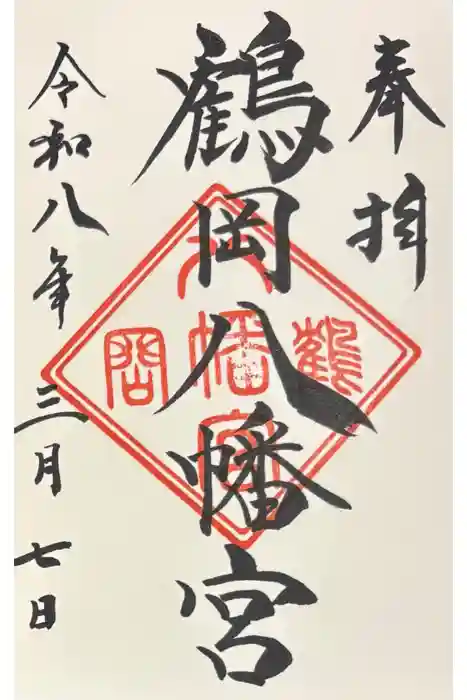 奉拝
鶴岡八幡宮
鶴
八幡宮
岡
令和八年三月七日